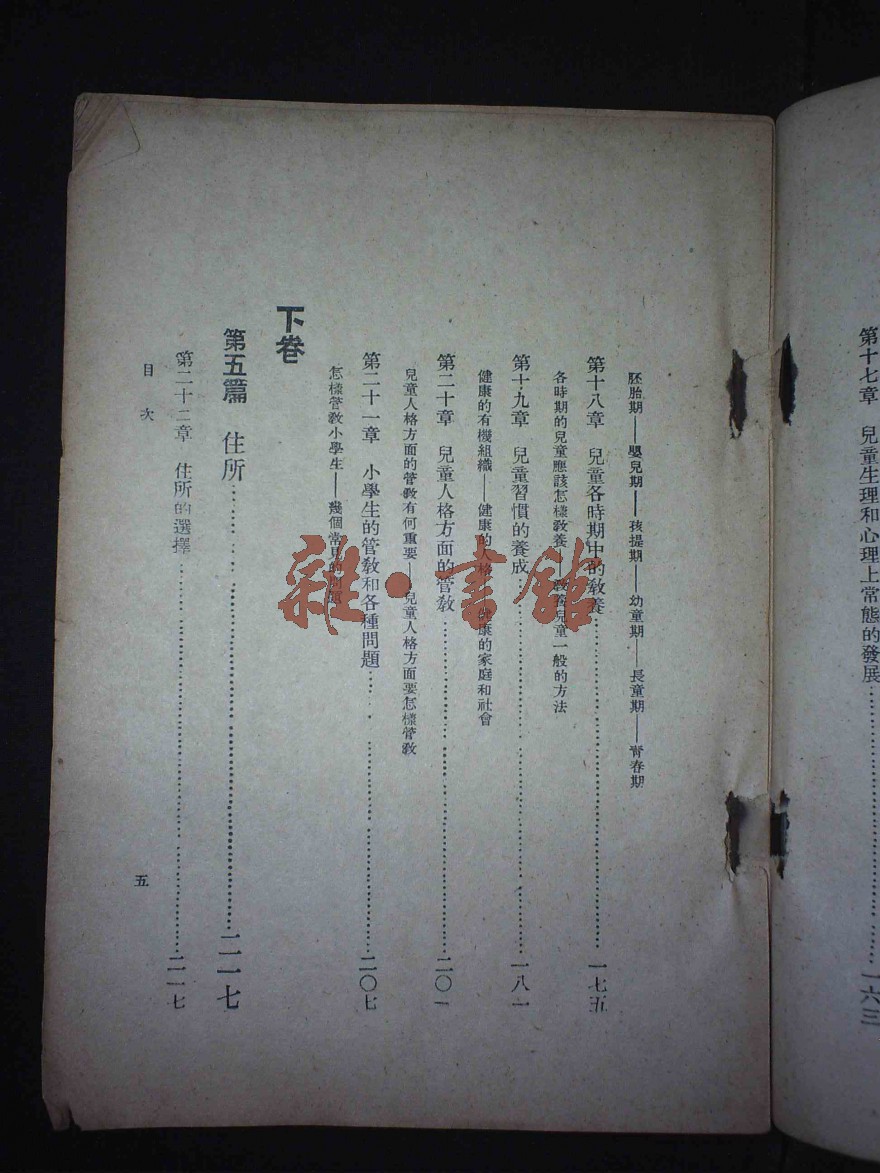 第十七章　兒童生理和心理上常態的發展……一六三
胚胎期——嬰兒期——孩提期——幼童期——長童期——靑春期
第十八章　兒童各時期中的敎養……一七五
各時期的兒童應該怎樣敎養——敎養兒童一般的方法
第十九章　兒童習慣的養成……一八一
健康的有機組織——健康的人格——健康的家庭和社會
第二十章　兒童人格方面的管敎……二〇一
兒童人格方面的管敎有何重要——兒童人格方面要怎樣管敎
第二十一章　小學生的管敎和各種問題……二〇七
怎樣管敎小學生——幾個常見的問題
下卷
第五篇　住所……二一七
第二十二章　住所的選擇……二一七
目次
五
雜·書館